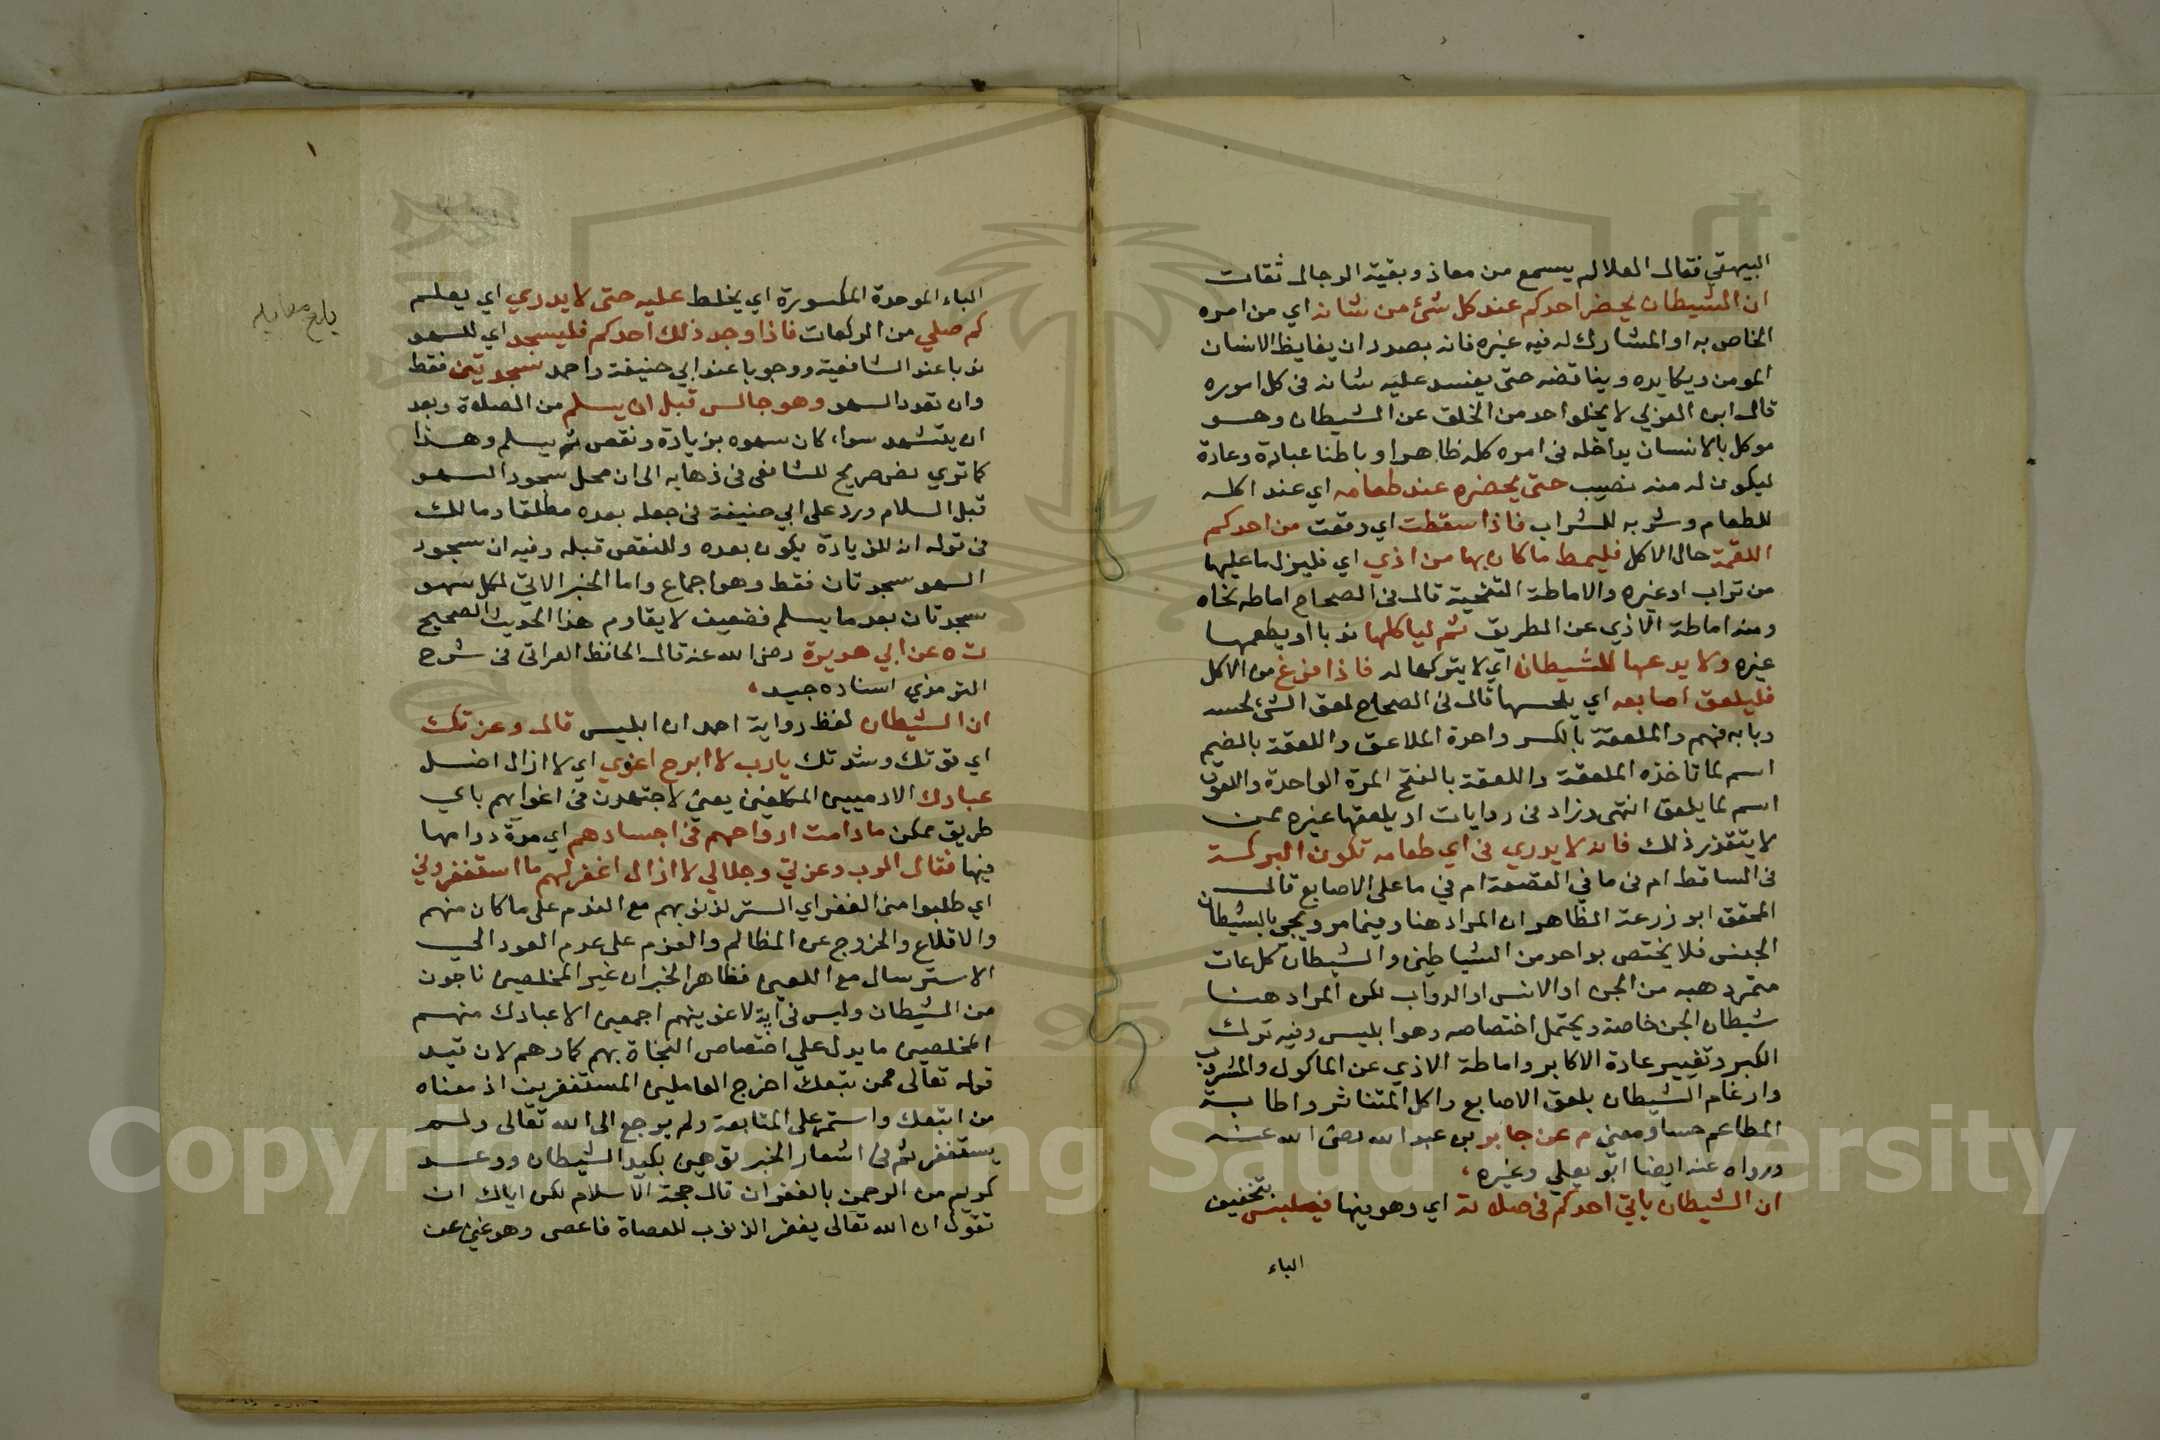 البيهقي فقال العلا لم يسمع من معاذ وبقية الرجال ثقات
ان الشيطان يحضر احدكم عند كل شئ من شانه اي من امره
الخاص به او المشارك له فيه غيره فانه بصدد ان يغايظ الانسان
المومن ويكايده ويناقضه حتى يفسد عليه شانه في كل اموره
قال ابن العربي لا يخلو احد من الخلق عن الشيطان وهو
موكل بالانسان يداخله في امره كله ظاهرا وباطنا عبادة وعادة
ليكون له منه نصيب حتى يحضره عند طعامه اي عند اكله
للطعام وشربه للشراب فاذا سقطت اي وقعت من احدكم
اللقمة حال الاكل فليمط ما كان بها من اذي اي فليزل ما عليها
من تراب او غيره والاماطة التنحية قال في الصحاح اماطه نحاه
ومنه اماطة الاذي عن الطريق ثم لياكلها ندبا او يطعمها
غيره ولا يدعها للشيطان اي لا يتركها له فاذا فرغ من الاكل
فليلعق اصابعه اي يلحسها قال في الصحاح لعق الشئ لحسه
وبابه فهم والملعقة بالكسر واحدة الملاعق واللعقة بالضم
اسم لما تاخذه الملعقة واللعقة بالفتح المرة الواحدة واللعوق
اسم لما يلعق انتهى وزاد في روايات او يلعقها غيره ممن
لا يتقذر ذلك فانه لا يدري في اي طعامه تكون البركة
في الساقط ام في ما في القصعة ام في ما على الاصابع قال
المحقق ابو زرعة الظاهر ان المراد هنا وفيما مر ويجئ بالشيطان
الجنس فلا يختص بواحد من الشياطين والشيطان كل عات
متمرد هبه من الجن او الانس او الدواب لكن المراد هنا
شيطان الجن خاصة ويحتمل اختصاصه وهو ابليس وفيه ترك
الكبر وتغيير عادة الاكابر واماطة الاذي عن الماكول والمشروب
وارغام الشيطان بلعق الاصابع واكل المتناثر واطابة
المطاعم حسا ومعني م عن جابر بن عبد الله رضي الله عنه
ورواه عنه ايضا ابو يعلي وغيره
ان الشيطان ياتي احدكم في صلاته اي وهو فيها فيلبس بتخفيف
الباء
الباء الموحدة المكسورة اي يخلط عليه حتى لا يدري اي يعلم
كم صلي من الركعات فاذا وجد ذلك احدكم فليسجد اي للسهو
ندبا عند الشافعية ووجوبا عند ابي حنيفة واحمد سجدتين فقط
وان تعدد السهو وهو جالس قبل ان يسلم من الصلاة وبعد
ان يتشهد سواء كان سهوه بزيادة ونقص ثم يسلم وهذا
كما تري نص صريح للشافعي في ذهابه الى ان محل سجود السهو
قبل السلام ورد على ابي حنيفة في جعله بعده مطلقا ومالك
في قوله ان للزيادة يكون بعده وللنقص قبله وفيه ان سجود
السهو سجدتان فقط وهو اجماع واما الخبر الاتي لكل سهو
سجدتان بعد ما يسلم فضعيف لا يقاوم هذا الحديث الصحيح
ت ه عن ابي هريرة رضي الله عنه قال الحافظ العراقي في شرح
الترمذي اسناده جيد
ان الشيطان لفظ رواية احمد ان ابليس قال وعزتك
اي قوتك وشدتك يا رب لا ابرح اغوي اي لا ازال اضل
عبادك الادميين المكلفين يعني لاجتهدن في اغوايهم باي
طريق ممكن ما دامت ارواحهم في اجسادهم اي مدة دوامها
فيها فقال الرب وعزتي وجلالي لا ازال اغفر لهم ما استغفروني
اي طلبوا مني الغفر اي الستر لذنوبهم مع الندم على ما كان منهم
والاقلاع والخروج عن المظالم والعزم على عدم العود الي
الاسترسال مع اللعين فظاهر الخبر ان غير المخلصين ناجون
من الشيطان وليس في اية لاغوينهم اجمعين الا عبادك منهم
المخلصين ما يدل علي اختصاص النجاة بهم كما وهم لان قيد
قوله تعالى ممن تبعك اخرج العاملين المستغفرين اذ معناه
من اتبعك واستمر على المتابعة ولم يرجع الى الله تعالى ولم
يستغفر ثم في اشعار الخبر توهين بكيد الشيطان ووعد
كريم من الرحمن بالغفران قال حجة الاسلام لكن اياك ان
تقول ان الله تعالى يغفر الذنوب للعصاة فاعصى وهو غني عن
بلغ مقابله
Copyright © King Saud University
1957